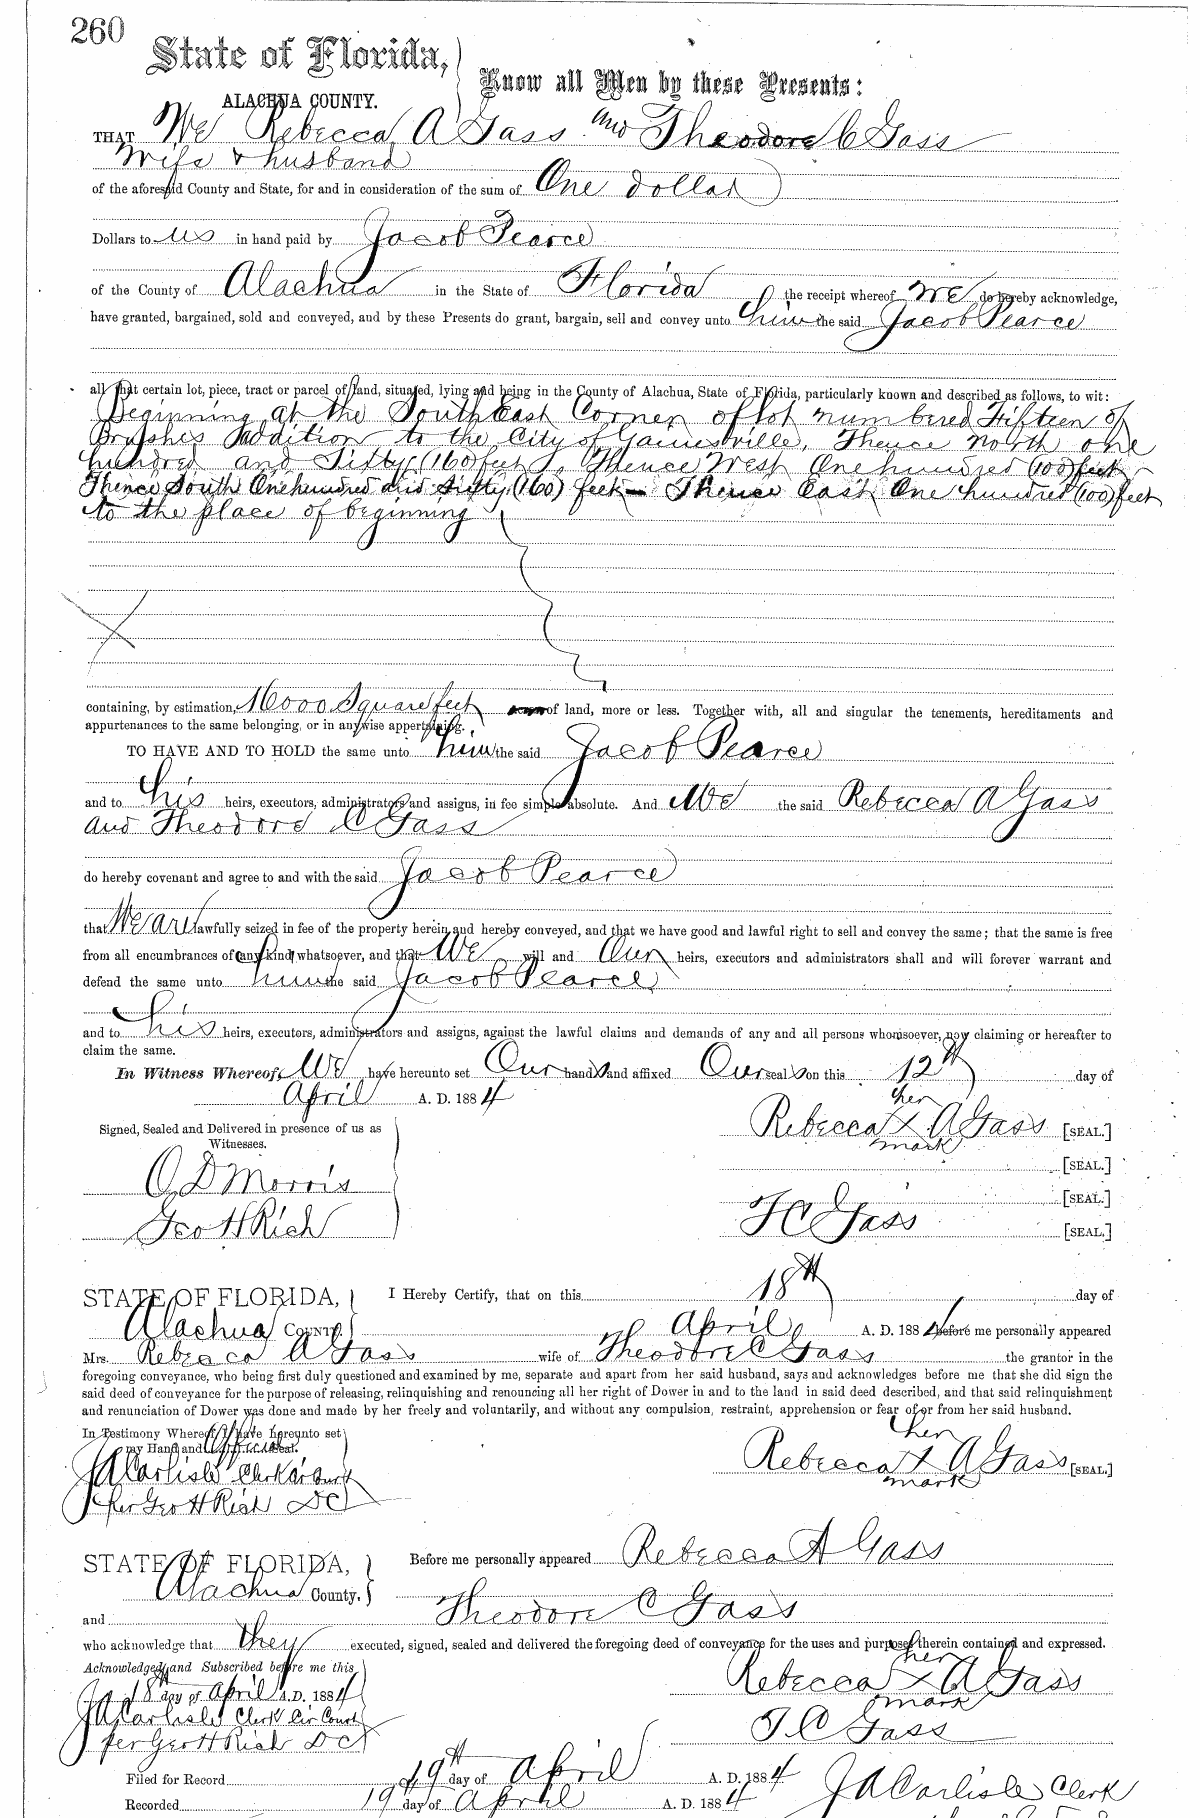 260
State of Florida,
ALACHUA COUNTY.
Know all Men by these Presents:
THAT We Rebecca A Gass and Theodore C Gass
Wife & husband
of the aforesaid County and State, for and in consideration of the sum of One dollar
Dollars to us in hand paid by Jacob Pearce
of the County of Alachua in the State of Florida the receipt whereof We do hereby acknowledge,
have granted, bargained, sold and conveyed, and by these Presents do grant, bargain, sell and convey unto him the said Jacob Pearce
all that certain lot, piece, tract or parcel of land, situated, lying and being in the County of Alachua, State of Florida, particularly known and described as follows, to wit:
Beginning at the South East Corner of lot numbered Fifteen of
Brushs Addition to the City of Gainesville, Thence North one
hundred and Sixty (160) feet, Thence West One hundred (100) feet
Thence South One hundred and Sixty (160) feet — Thence East One hundred (100) feet
to the place of beginning
containing, by estimation, 16000 Square feet of land, more or less. Together with, all and singular the tenements, hereditaments and
appurtenances to the same belonging, or in anywise appertaining.
TO HAVE AND TO HOLD the same unto him the said Jacob Pearce
and to his heirs, executors, administrators and assigns, in fee simple absolute. And We the said Rebecca A Gass
and Theodore C Gass
do hereby covenant and agree to and with the said Jacob Pearce
that We are lawfully seized in fee of the property herein and hereby conveyed, and that we have good and lawful right to sell and convey the same; that the same is free
from all encumbrances of any kind whatsoever, and that We will and Our heirs, executors and administrators shall and will forever warrant and
defend the same unto him the said Jacob Pearce
and to his heirs, executors, administrators and assigns, against the lawful claims and demands of any and all persons whomsoever, now claiming or hereafter to
claim the same.
In Witness Whereof, We have hereunto set Our hands and affixed Our seals on this 12th day of
April A. D. 1884
Signed, Sealed and Delivered in presence of us as
Witnesses.
her
Rebecca X A Gass [SEAL.]
mark
[SEAL.]
O D Morris
[SEAL.]
Geo H Rich
T C Gass [SEAL.]
STATE OF FLORIDA, I Hereby Certify, that on this 18th day of
Alachua COUNTY. April A. D. 1884 before me personally appeared
Mrs. Rebecca A Gass wife of Theodore C Gass the grantor in the
foregoing conveyance, who being first duly questioned and examined by me, separate and apart from her said husband, says and acknowledges before me that she did sign the
said deed of conveyance for the purpose of releasing, relinquishing and renouncing all her right of Dower in and to the land in said deed described, and that said relinquishment
and renunciation of Dower was done and made by her freely and voluntarily, and without any compulsion, restraint, apprehension or fear of or from her said husband.
In Testimony Whereof I have hereunto set
my Hand and Official Seal.
her
Rebecca X A Gass [SEAL.]
mark
J A Carlisle Clerk Cir Court
per Geo H Rich D C
STATE OF FLORIDA, Before me personally appeared Rebecca A Gass
Alachua County.
and Theodore C Gass
who acknowledge that they executed, signed, sealed and delivered the foregoing deed of conveyance for the uses and purposes therein contained and expressed.
Acknowledged and Subscribed before me this
18th day of April A.D. 1884
her
Rebecca X A Gass
mark
J A Carlisle Clerk Cir Court
T C Gass
per Geo H Rich D C
Filed for Record 19th day of April A. D. 1884
J A Carlisle Clerk
Recorded 19 day of April A. D. 1884